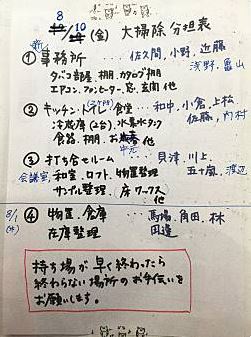 8/10 (金) 大掃除分担表
① 事務所 … 佐久間, 小野, 近藤
浅野, 畠山
タバコ部屋. 棚. カタログ棚
エアコン. ファンヒーター. 窓. 玄関 他
② キッチン・トイレ・食堂 … 和中, 小倉, 上松
佐藤, 内村
冷蔵庫 (2台) 水素水タンク
食器. 棚. お中元 他
③ 打ち合せルーム … 貝津. 川上.
会議室 和室. ロフト. 物置整理 五十嵐. 渡辺
サンプル整理. 床ワックス 他
8/1 (水)
④ 物置. 倉庫 … 馬場. 角田. 林
在庫整理 田邉
持ち場が早く終わったら
終わらない場所のお手伝いを
お願いします。